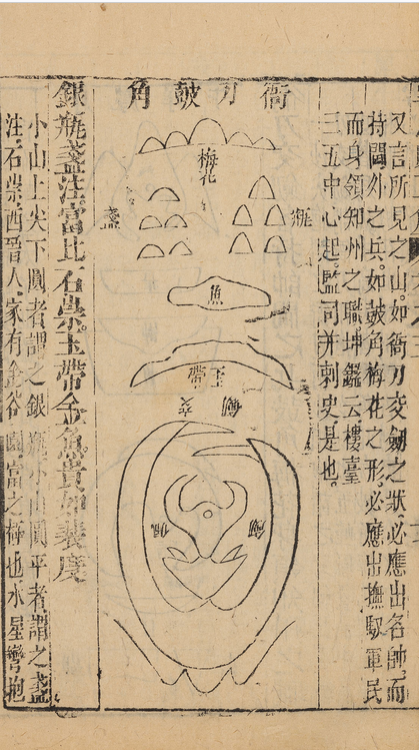 又言所見之山。如衙刀交劔之狀。必應出名帥。而
持閫外之兵。如鼓角梅花之形。必應出撫馭軍民
而身領知州之職。坤鑑云樓臺
三五中心起。監司并刺史是也。
衙刀鼓角
梅花
瓶
盞
魚
玉帶
劔交
劔
銀瓶盞注富比石崇。玉帶金魚貴如裴度
小山上尖下圓者謂之銀瓶。小山圓平者謂之盞
注。石崇西晉人。家有金谷園。富之極也。水星彎抱